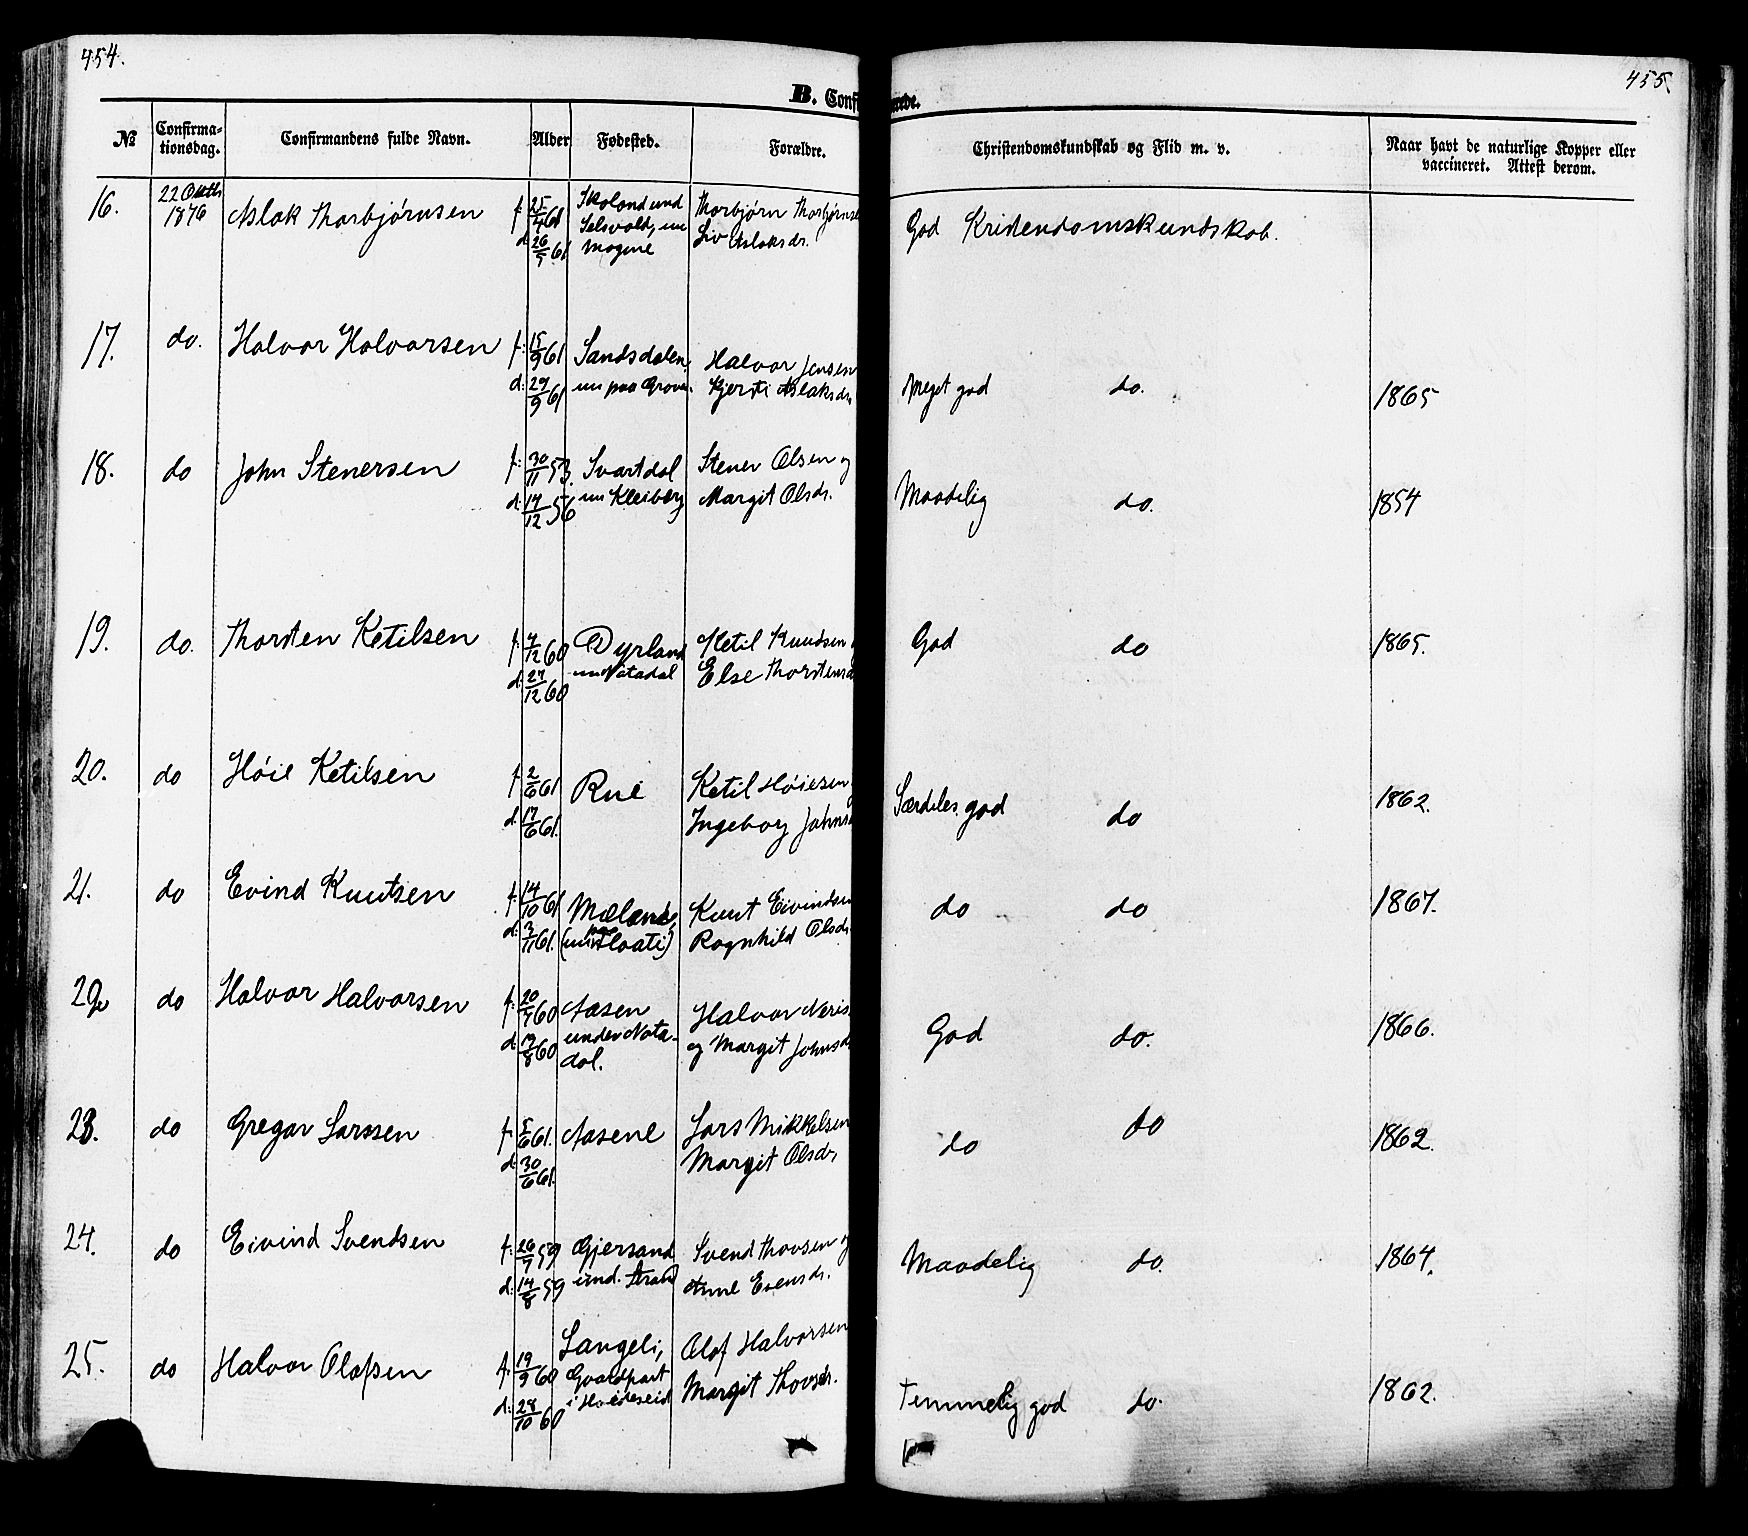 454.
455.
B. Conf
ande.
№
Confirma-
tionsdag.
Confirmandens fulde Navn.
Alder
Fødested.
Forældre.
Christendomskundskab og Flid m. v.
Naar havt de naturlige Kopper eller
vaccineret. Attest derom.
16.
22 Octbr
1876
Aslak Thorbjørnsen
f. 25/4 61
d 26/5 61
Thorbjørn Thorbjørns
Liv Aslaksdr.
God Kristendomskundskab.
17.
do.
Halvor Halvorsen
f: 15/9 61
d: 29/9 61
Sandsdalen
un paa Grove
Halvor Jensen
Kjersti Aslaksdr
Meget god do.
1865
18.
do
John Stenersen
f: 30/11 53.
d: 14/12 56
Svartdal
un Kleiberg
Stener Olsen og
Margit Olsdr.
Maadelig do.
1854
19.
do.
Thorsten Ketilsen
f. 4/12 60
d. 27/12 60
Dyrland
un Natadal
Ketil Knudsen
Else Thorstens
God do
1865.
20.
do
Høie Ketilsen
f. 2/6 61
d. 17/6 61.
Rue
Ketil Høiesen
Ingeborg Johns
Særdeles god do
1862.
21.
do
Evind Knutsen
f. 14/10 61
d. 3/11 61.
Mæland,
Knut Eivindsen
Ragnhild Olsdr
do do
1867.
22
do
Halvor Halvorsen
f. 20/7 60
d. 19/8 60
Aasen
under Nata-
dal.
Halvor Neris
og Margit Johnsd
God do.
1866.
23.
do
Gregar Larssen
f. 5/6 61.
d. 30/6 61.
Aasene
Lars Mikkelsen
Margit Olsdr
do do
1862.
24.
do
Eivind Svendsen
f: 26/7 59
d: 14/8 59
Gjersand
und. Strand
Svend Thovsen og
Anne Evensdr.
Maadelig do.
1864.
25.
do
Halvor Olafsen
f. 19/9 60
d. 28/10 60
Langeli,
Gaardpart
i Hvideseid
Olaf Halvorsen
Margit Thovsdr.
Temmelig god do.
1862.